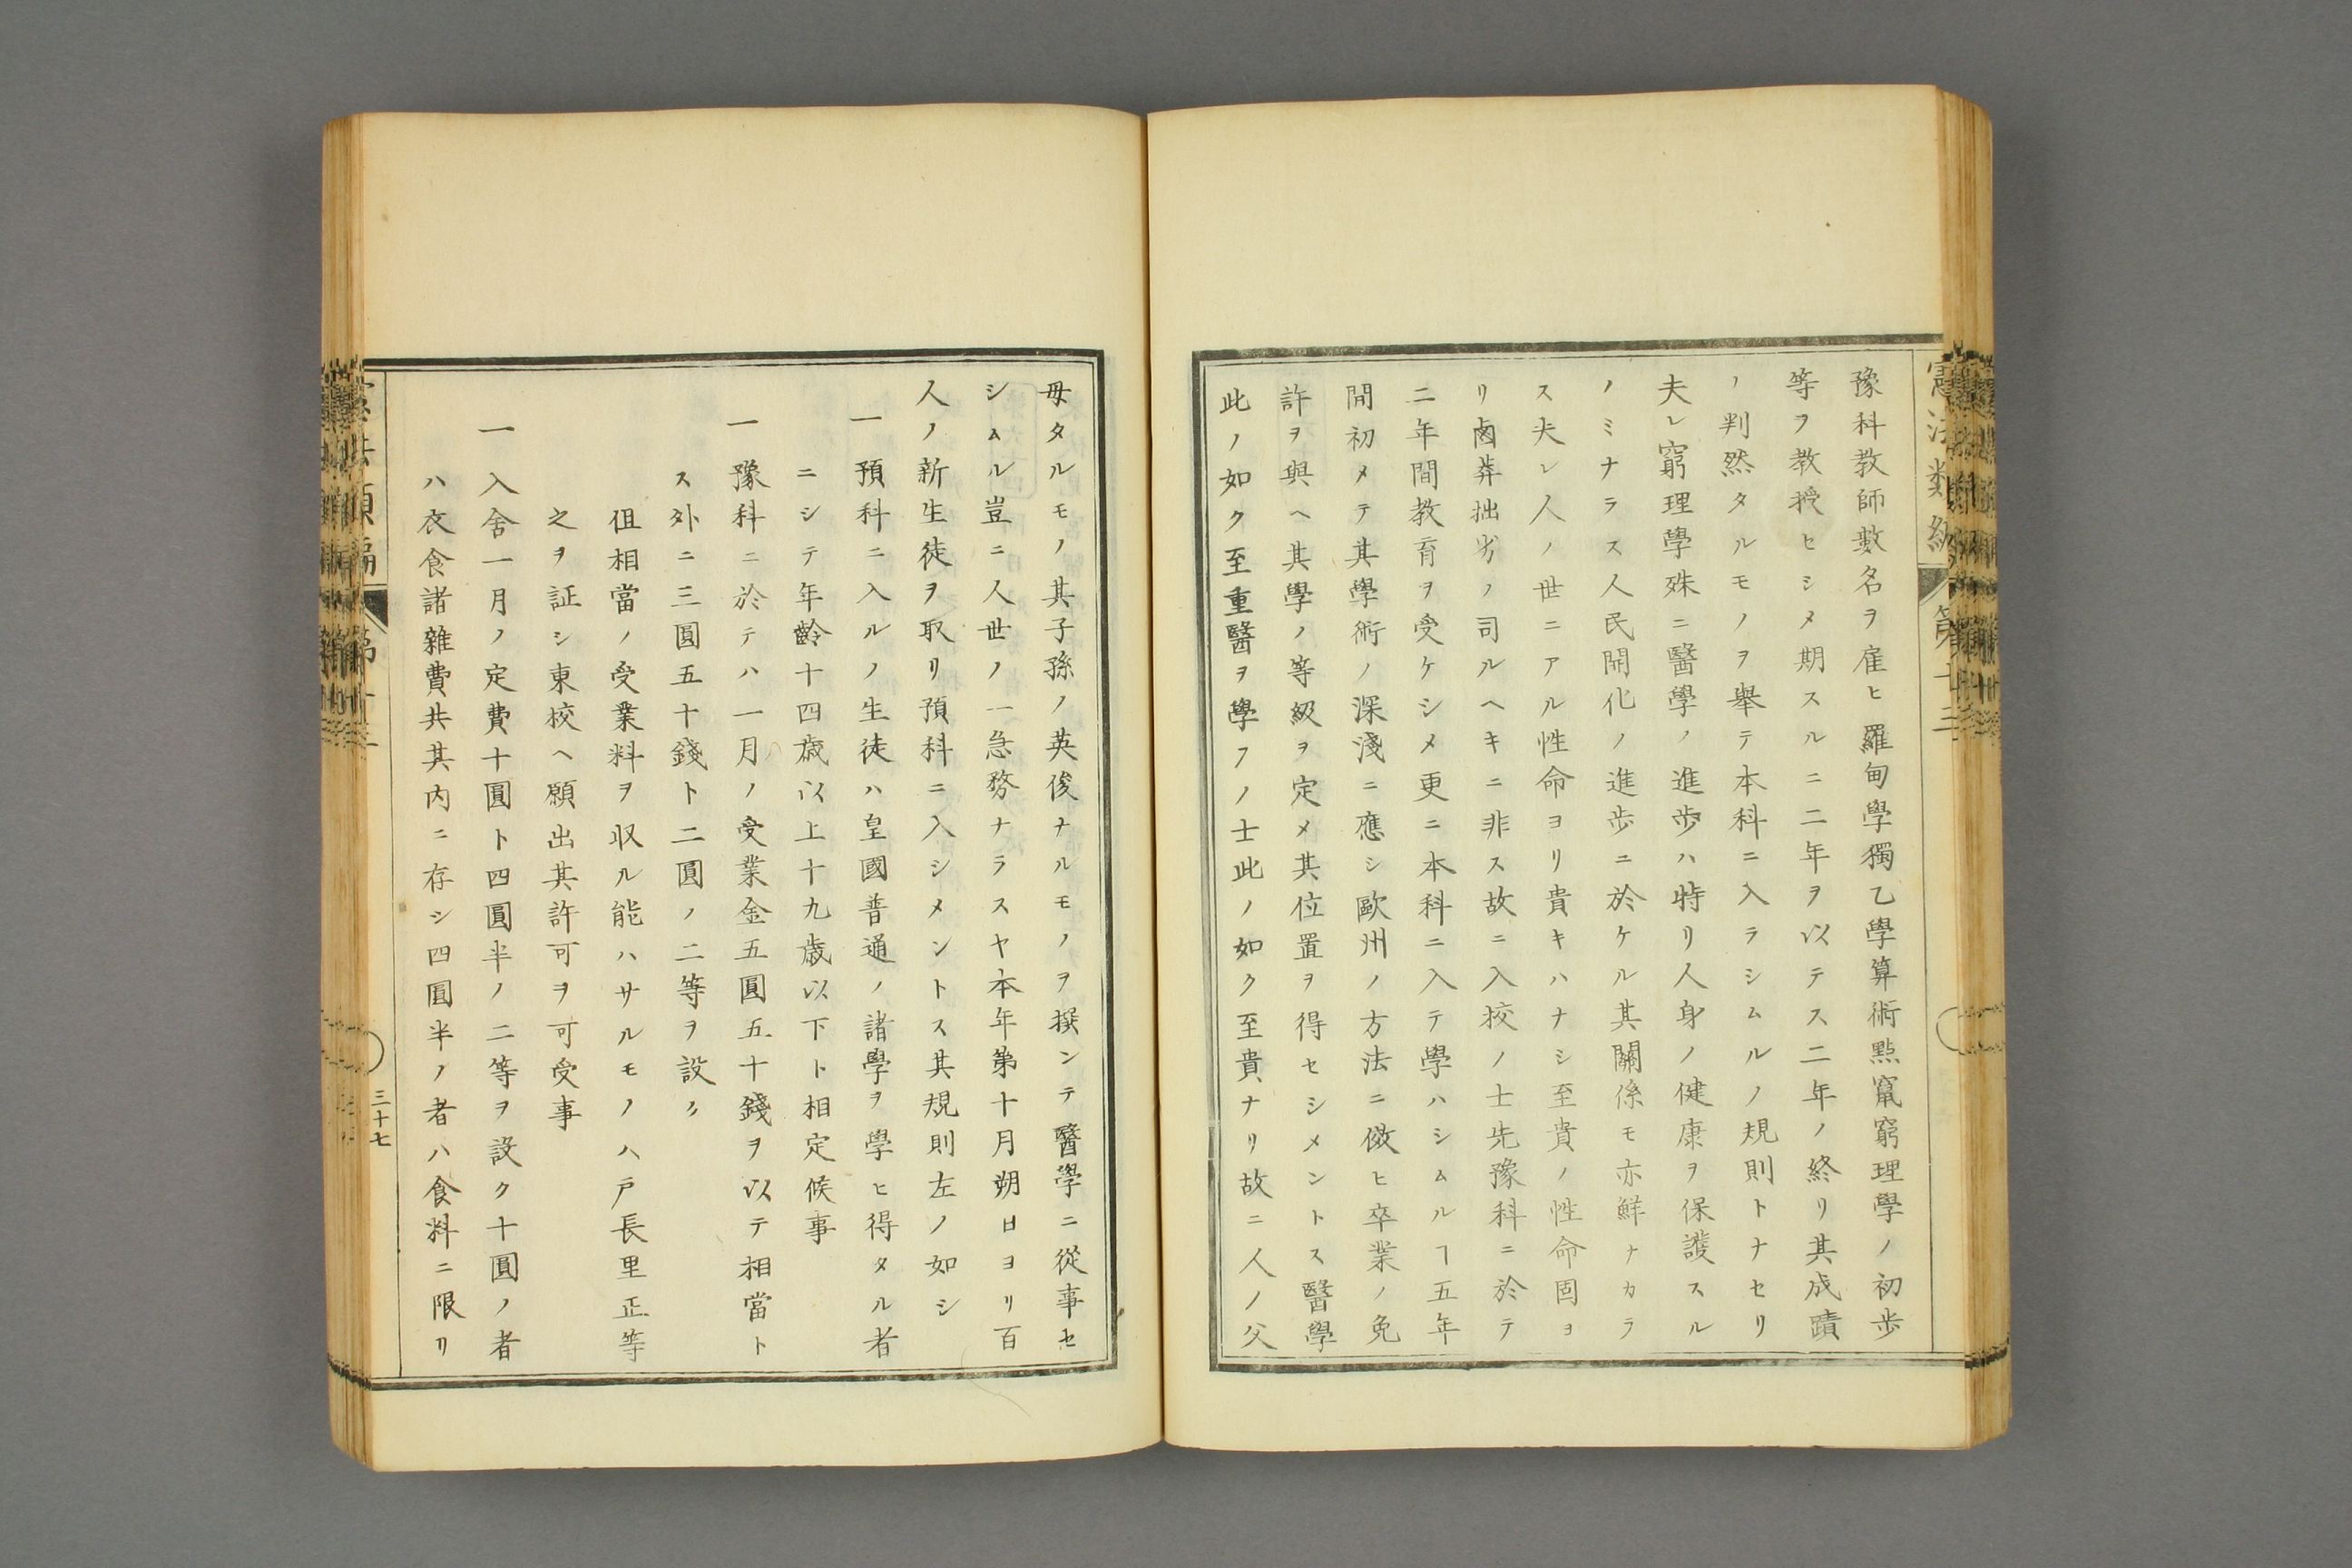 豫科教師數名ヲ雇ヒ羅甸學獨乙學算術點竄窮理學ノ初步
等ヲ教授ヒシメ期スルニ二年ヲ以テス二年ノ終リ其成蹟
ノ判然タルモノヲ舉テ本科ニ入ラシムルノ規則トナセリ
夫レ窮理學殊ニ醫學ノ進步ハ特リ人身ノ健康ヲ保護スル
ノミナラス人民開化ノ進步ニ於ケル其關係モ亦鮮ナカラ
ス夫レ人ノ世ニアル性命ヨリ貴キハナシ至貴ノ性命固ヨ
リ鹵莽拙劣ノ司ルヘキニ非ス故ニ入校ノ士先豫科ニ於テ
二年間教育ヲ受ケシメ更ニ本科ニ入テ學ハシムルヿ五年
間初メテ其學術ノ深淺ニ應シ歐州ノ方法ニ倣ヒ卒業ノ免
許ヲ與ヘ其學ノ等級ヲ定メ其位置ヲ得セシメントス醫學
此ノ如ク至重醫ヲ學フノ士此ノ如ク至貴ナリ故ニ人ノ父
母タルモノ其子孫ノ英俊ナルモノヲ撰ンテ醫學ニ從事セ
シムル豈ニ人世ノ一急務ナラスヤ本年第十月朔日ヨリ百
人ノ新生徒ヲ取リ預科ニ入シメントス其規則左ノ如シ
一預科ニ入ルノ生徒ハ皇國普通ノ諸學ヲ學ヒ得タル者
ニシテ年齡十四歲以上十九歲以下ト相定候事
一豫科ニ於テハ一月ノ受業金五圓五十錢ヲ以テ相當ト
ス外ニ三圓五十錢ト二圓ノ二等ヲ設ク
但相當ノ受業料ヲ収ル能ハサルモノハ戸長里正等
之ヲ証シ東校ヘ願出其許可ヲ可受事
一入舍一月ノ定費十圓ト四圓半ノ二等ヲ設ク十圓ノ者
ハ衣食諸雜費共其内ニ存シ四圓半ノ者ハ食料ニ限リ
三十七